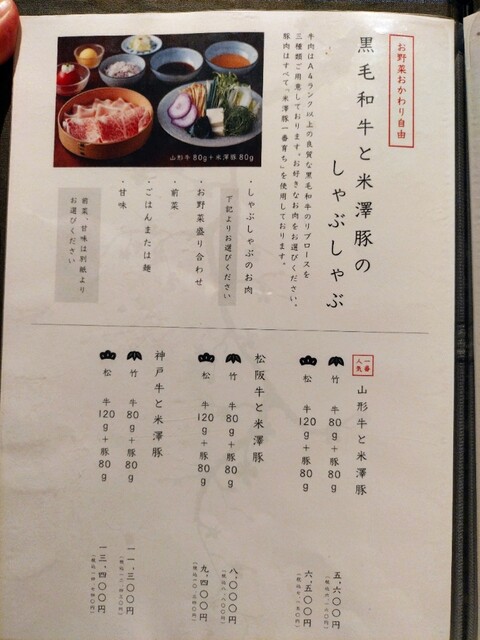 お野菜おかわり自由
黒毛和牛と米澤豚の
しゃぶしゃぶ
牛肉はA4ランク以上の良質な黒毛和牛のリブロースを
三種類ご用意しております。お好きなお肉をお選びください。
豚肉はすべて「米澤豚一番育ち」を使用しております。
山形牛80g+米澤豚80g
・しゃぶしゃぶのお肉
下記よりお選びください
・お野菜盛り合わせ
・前菜
・ごはんまたは麺
・甘味
前菜、甘味は別紙より
お選びください
一番人気
山形牛と米澤豚
竹 牛80g+豚80g 五、六〇〇円
(税込六、一六〇円)
松 牛120g+豚80g 六、五〇〇円
(税込七、一五〇円)
松阪牛と米澤豚
竹 牛80g+豚80g 八、〇〇〇円
(税込八、八〇〇円)
松 牛120g+豚80g 九、四〇〇円
(税込一〇、三四〇円)
神戸牛と米澤豚
竹 牛80g+豚80g 一一、三〇〇円
(税込一二、四三〇円)
松 牛120g+豚80g 一三、四〇〇円
(税込一四、七四〇円)